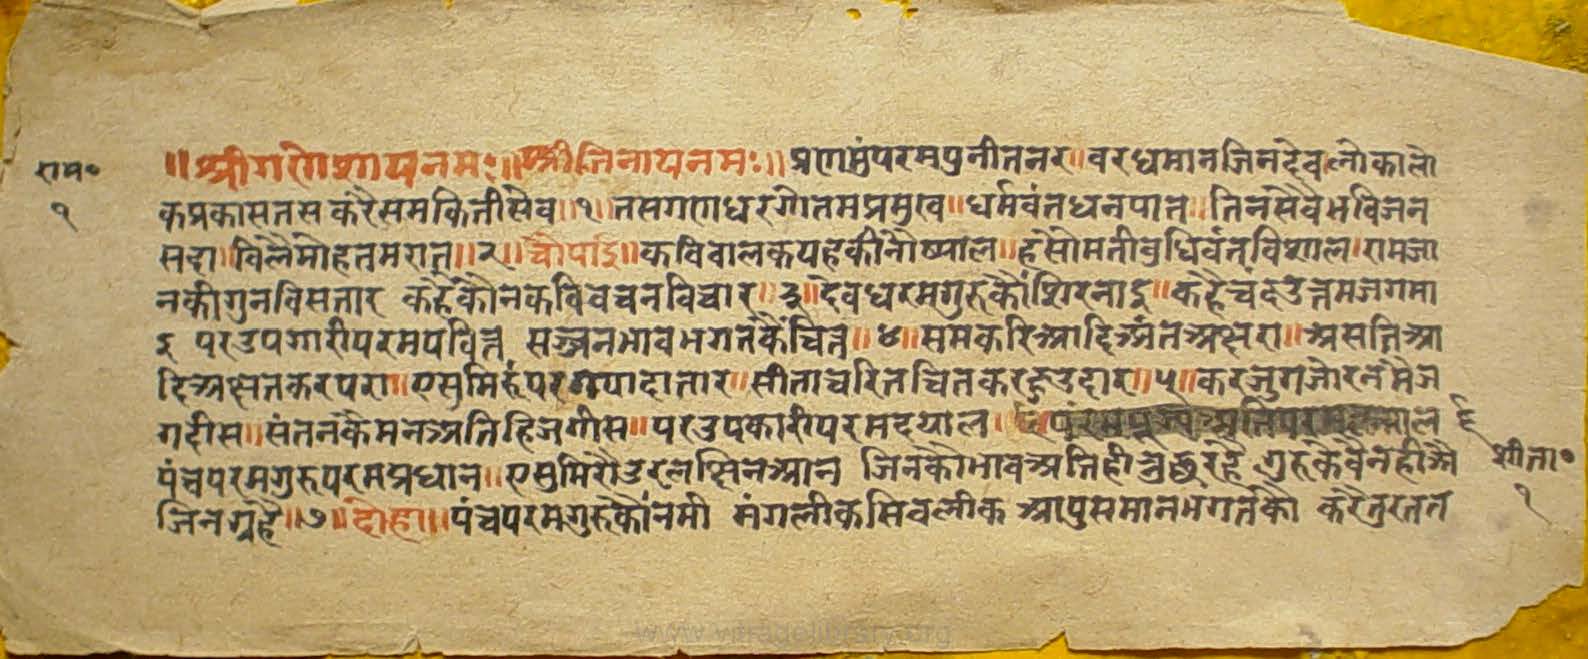 राम॰
१
॥श्रीगणेशायनमः॥श्रीजिनायनमः॥प्रणमुंपरमपुनीतनर॥वरधमानजिनदेव।लोकालो
कप्रकासतस करैसमकितीसेव॥१॥तसगणधरगौतमप्रमुख॥धर्मवंतधनपात्र॥तिनसेवैभविजन
सदा॥विलैमोहतमरात्र॥२॥चौपाइ॥कविबालकयहकीनौष्याल॥हसौमतीबुधिवंतविशाल।रामजा
नकीगुनविसतार कहैकौनकविवचनविचार॥३॥देवधरमगुरुकौंशिरनाइ॥कहैचंदउत्तमजगमा
इ परउपगारीपरमपवित्र सज्जनभावभगतकैंचित्र॥४॥समकरिआदिअंतअक्षरा॥असतिआ
दिअक्षतकरपरा॥एसुमिरुंपर पादातार॥सीताचरितचितकरहुउदार॥५॥करजुगजोरनमैज
गदीस॥संतनकैमनअतिहिजगीस॥परउपकारीपरमदयाल। ल ६
पंचपरमगुरुपरमप्रधान॥एसुमिरौउरलक्षिनआन जिनकौभावअतिही रहै गुरुकेवैनहीऔ
सीता॰
१
जिनग्रहै॥७॥दोहा॥पंचपरमगुरुकौंनमी मंगलीकसिवलीक आपुसमानभगतकौ करैतुरतत
www.vitragelibrary.org